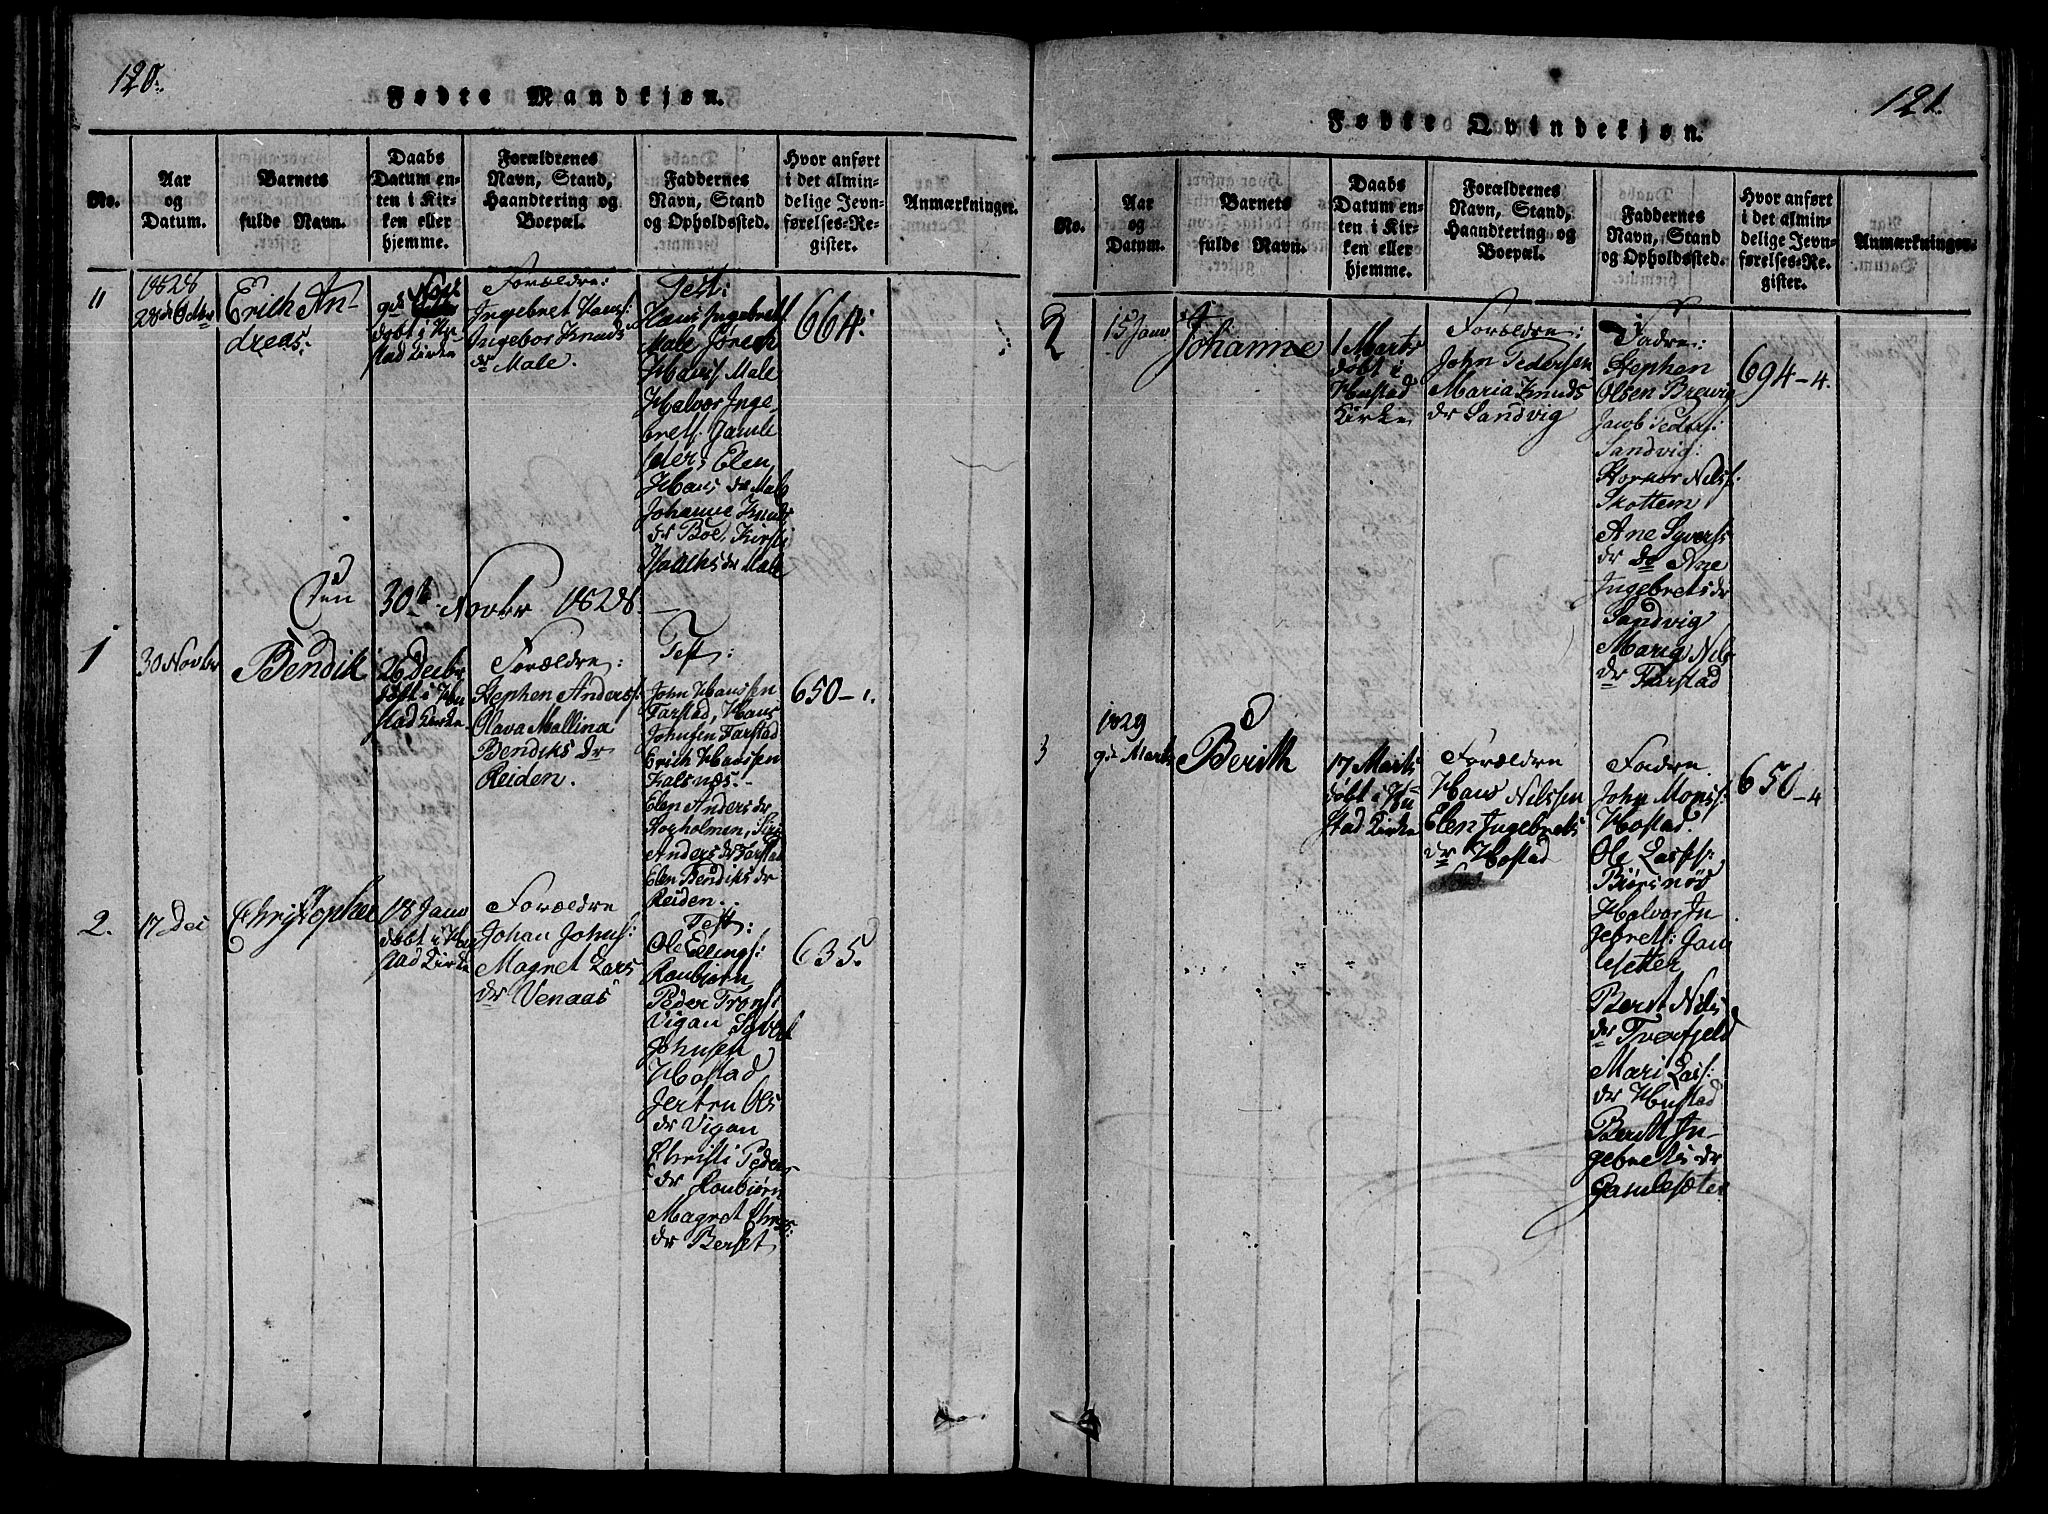 120.
Fødte Mandkjøn.
No.
Aar
og
Datum.
Barnets
fulde Navn.
Daabs
Datum en-
ten i Kir-
ken eller
hjemme.
Forældrenes
Navn, Stand,
Haandtering og
Boepæl.
Faddernes
Navn, Stand
og Opholdssted.
Hvor anført
i det almin-
delige Jevn-
førelses-Re-
gister.
Anmærkninger.
11
1828
28de Octbr
Erich An-
dreas.
9de Novr
døbt i Hu
stad Kirke
Forældre:
Ingebret Hans:
Ingebor Knuds
dr Male.
Test:
Hans Ingebrets
Male Jøren
Hans: Male
Halvor Inge-
brets. Gamle
sæter Elen
Hans dr Male
Johanne Knuds
dr Boe, Kirsti
dr Male
664.
30te Novbr 1828.
1
30 Novbr
Bendik
26 Decbr
døbt i Hu
stad Kirke
Forældre:
Stephen Anders:
Olava Mallina
Bendiks dr
Reiden.
Test:
John Hanssen
Farstad, Hans
Johnsen Farstad
Erich Hanssen
Kalsnæs.
Elen Anders dr
Storholmen,
Anders dr Farstad
Elen Bendiks dr
Reiden.
650-1.
2.
17 Dec
Christopher
18 Janv
døbt i Hu
stad Kirke
Forældre
Johan Johns:
Magret Lars
dr Venaas
Test:
Ole Ellings:
Roubjørn
Peder Trons:
Vigan Syvert
Johnsen
Hostad
Jertru Ols
dr Vigan
Christi Peders
dr Roubjørn
Magret Chris:
dr Berset
635.
121.
Fødte Qvindekjøn.
No.
Aar
og
Datum.
Barnets
fulde Navn.
Daabs
Datum en-
ten i Kir-
ken eller
hjemme.
Forældrenes
Navn, Stand,
Haandtering og
Boepæl.
Faddernes
Navn, Stand
og Opholdssted.
Hvor anført
i det almin-
delige Jevn-
førelses-Re-
gister.
Anmærkninger.
2
15 Janv
Johanne
1 Marts
døbt i
Hustad
Kirke
Forældre:
John Pedersen
Maria Knuds
dr Sandvig
Fadre:
Stephen
Olsen Brevig
Jacob Peders:
Sandvig:
Nils:
Skottem
Ane Syverts
dr do Ane
Ingebrets dr
Sandvig
Marig Nils
dr Farstad
694-4.
3
1829
9de Marts
Berith
17 Marts
døbt i Hu
stad Kirke
Forældre
Hans Nilssen
Elen Ingebrets
dr Hostad
Fadre.
John Mons:
Hostad.
Ole Lass:
Biørsnøs
Halvor In
gebrets: Gam
lesetter
Berit Nils
dr Tverfjeld
Mari Lass:
dr Hustad
Berith In-
gebrets dr
Gamlesæter
650-4